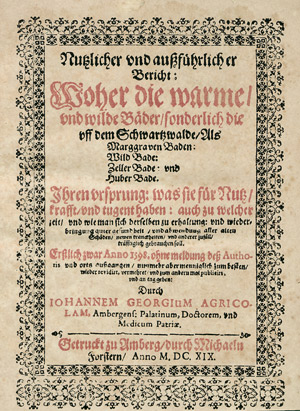 Nutzlicher vnd außführlicher
Bericht:
Woher die warme/
vnd wilde Bäder/sonderlich die
vff dem Schwartzwalde/Als
Marggraven Baden:
Wild Bade:
Zeller Bade: vnd
Huber Bade.
Ihren vrsprung: was sie für Nutz/
krafft/vnd tugent haben: auch zu welcher
zeit/ vnd wie man sich derselben zu erhaltung: vnd wieder-
bringung guter gesundtheit/ vnd abwendung aller alten
Schäden/ newen kranckheiten/ vnd anderer zufäll/
träfftiglich gebrauchen soll.
Erstlich zwar Anno 1598. ohne meldung deß Autho-
ris vnd orts außgangen/ nunmehr aber menniglich zum besten/
wieder revidirt, vermehrt: vnd zum andern mal publicirt,
vnd an tag geben:
Durch
IOHANNEM GEORGIUM AGRICO-
LAM, Ambergens: Palatinum, Doctorem, vnd
Medicum Patriæ.
Getruckt zu Amberg/durch Michaeln
Forstern/ Anno M, DC. XIX.